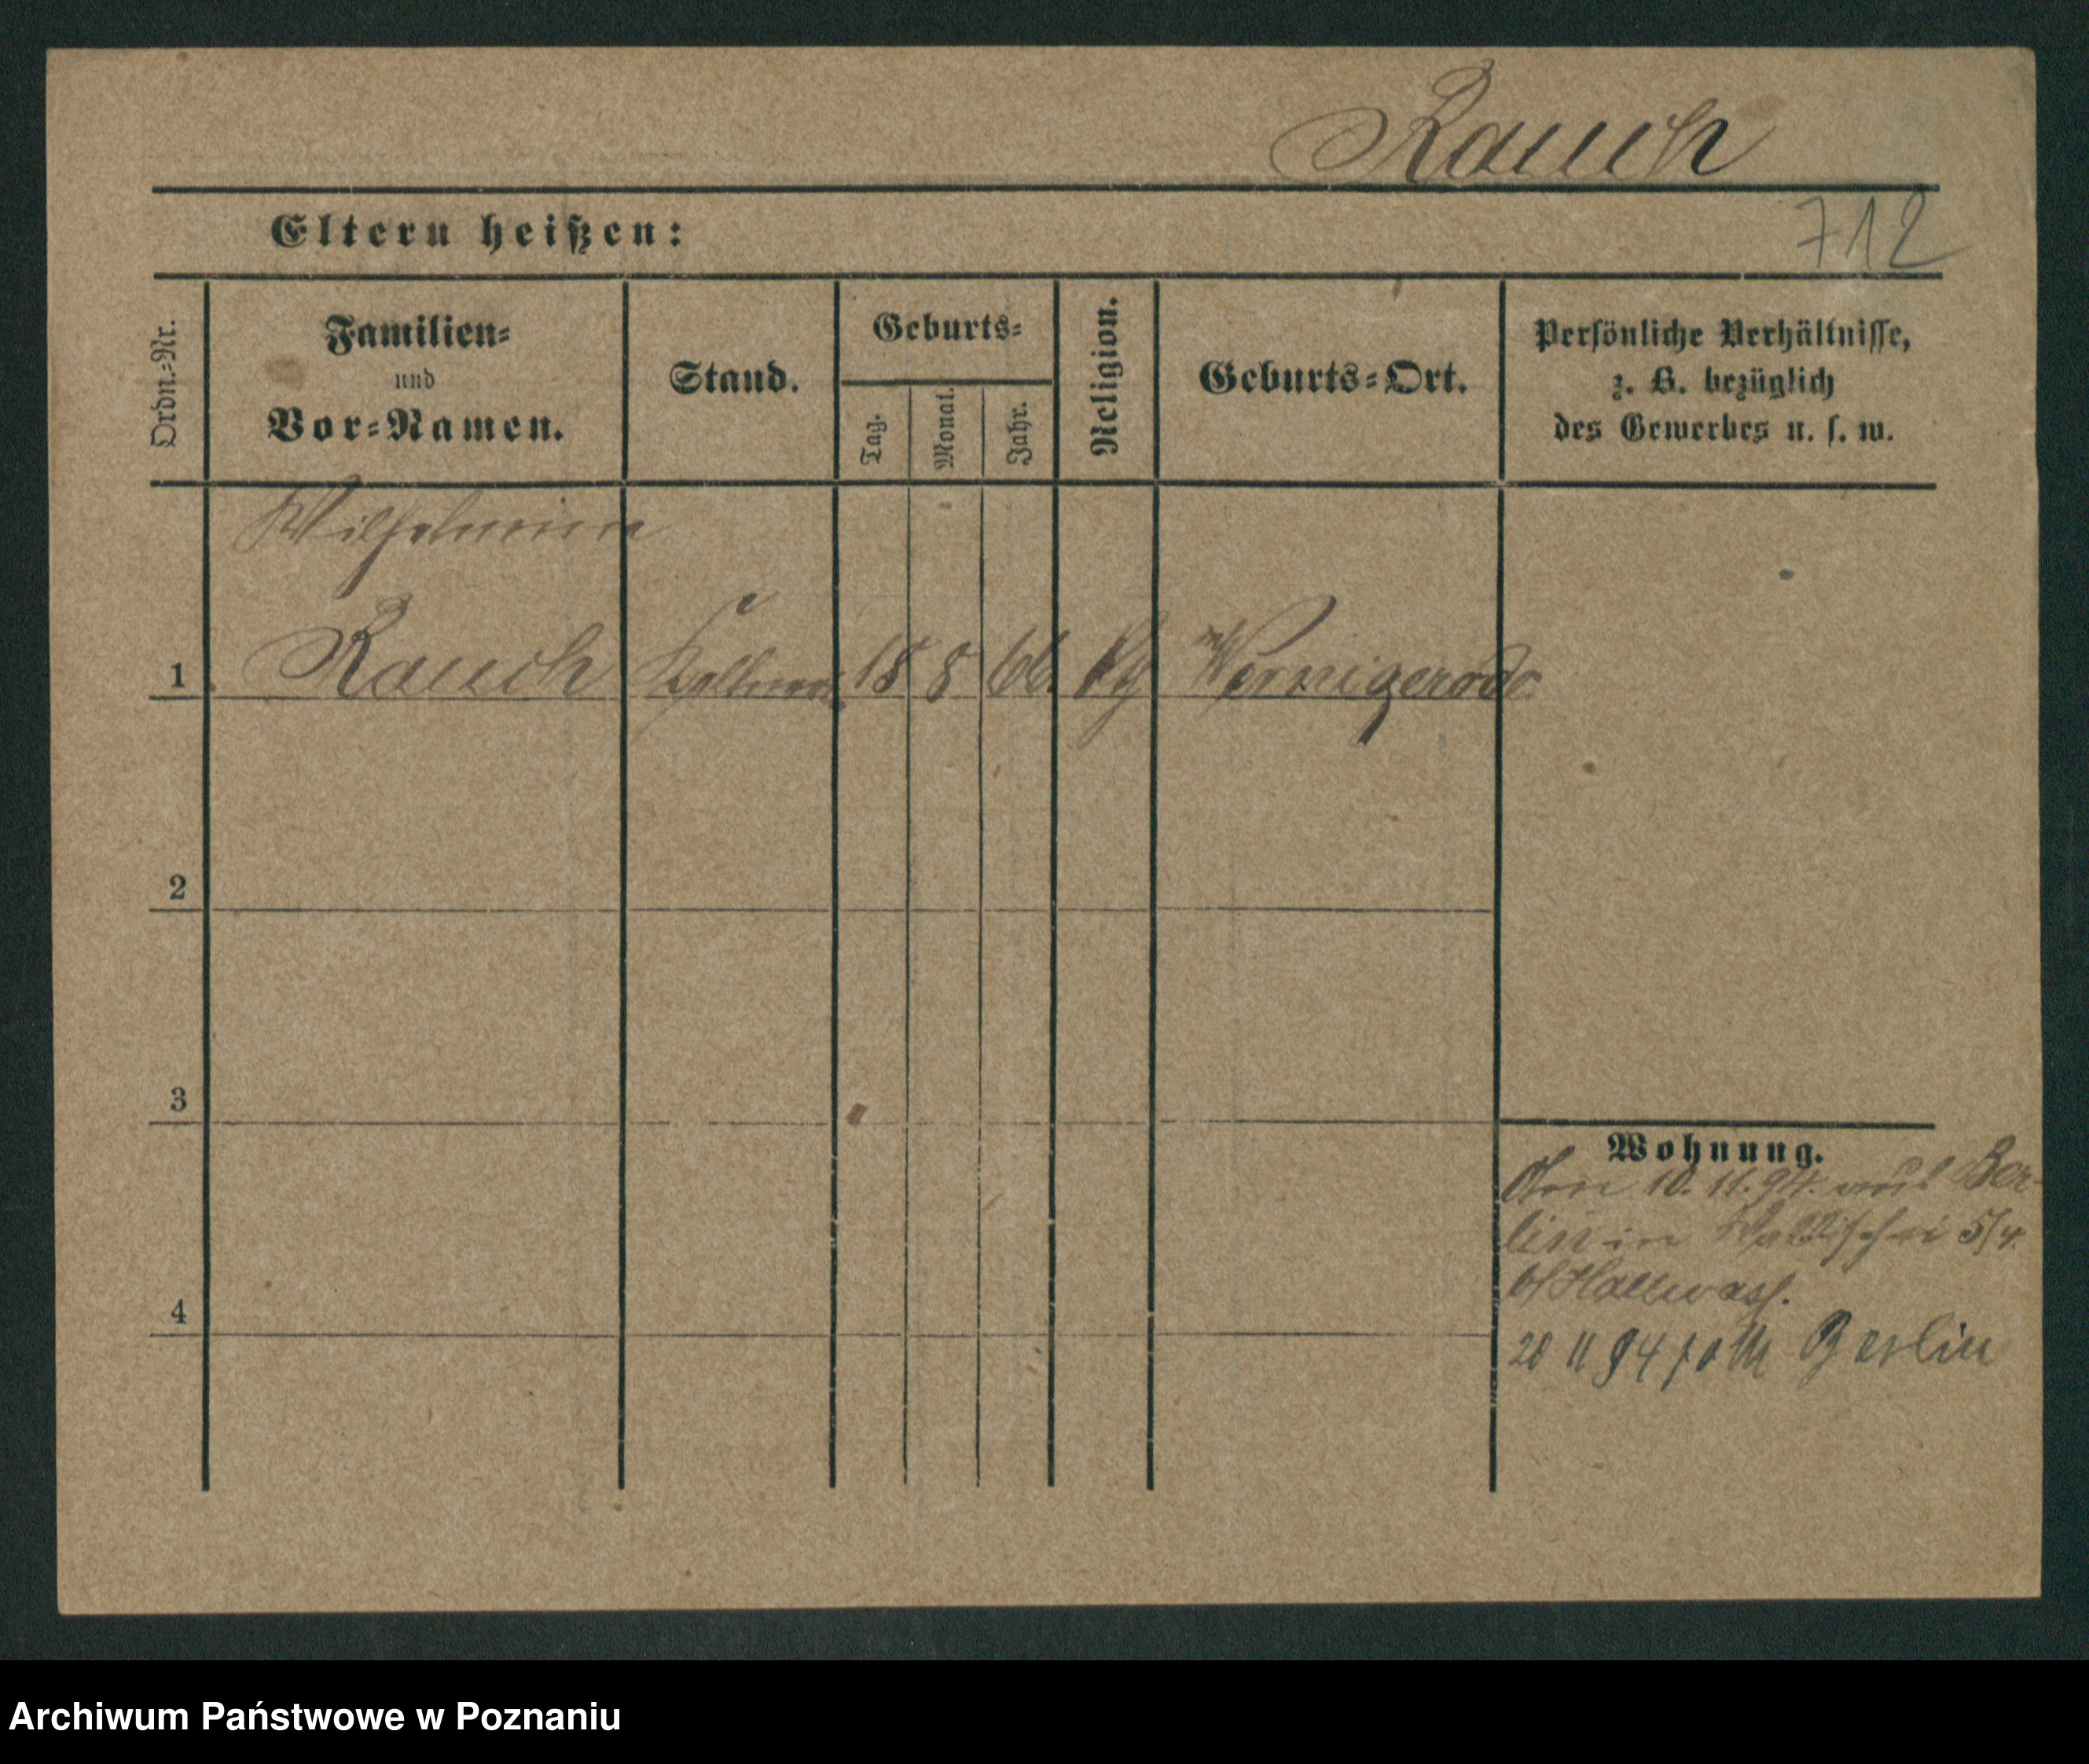 Rauch
712
Eltern heißen:
Ordn.-Nr.
Familien-
und
Vor-Namen.
Stand.
Geburts-
Tag.
Monat.
Jahr.
Religion.
Geburts-Ort.
Persönliche Verhältnisse,
z. B. bezüglich
des Gewerbes u. s. w.
Wilhelmine
1 Rauch Kellnerin 18 8 66 Wernigerode
2
3
4
Wohnung.
10. 11. 94. aus Ber-
lin in Wallischei 5/4.
b/Hallwass.
20 11 94 Berlin
Archiwum Państwowe w Poznaniu